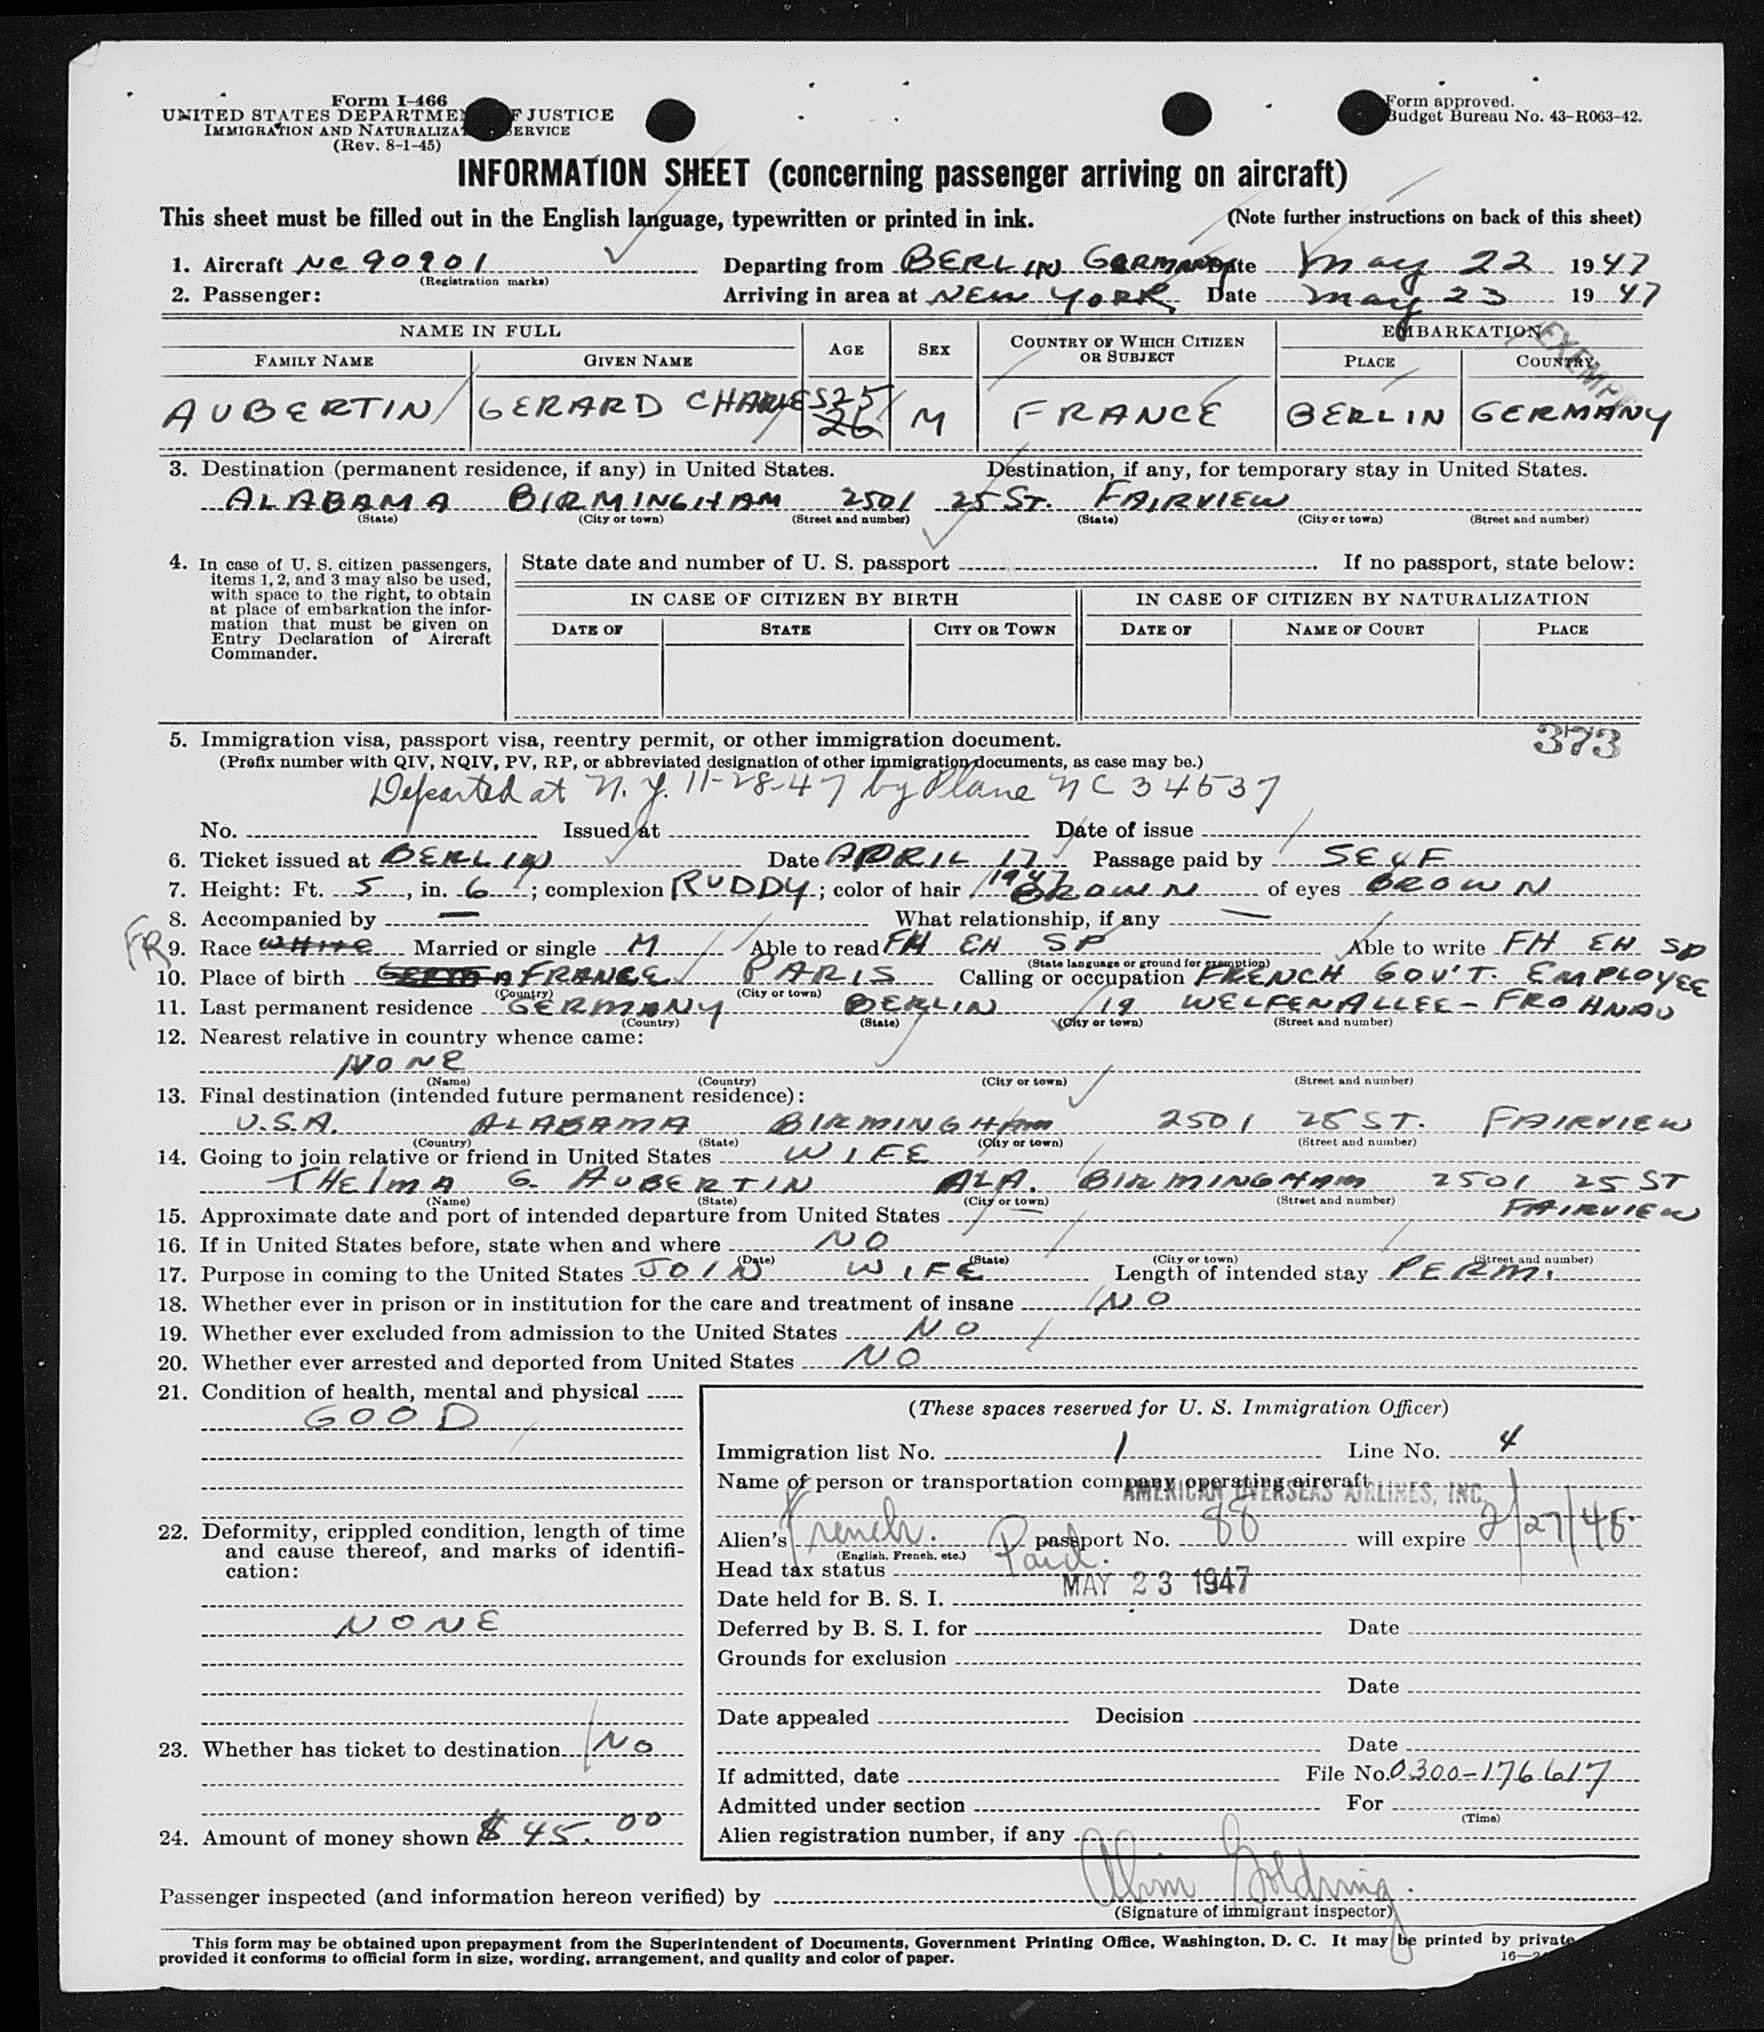 Form I-466
UNITED STATES DEPARTMENT OF JUSTICE
IMMIGRATION AND NATURALIZATION SERVICE
(Rev. 8-1-45)
Form approved.
Budget Bureau No. 43-R063-42.
INFORMATION SHEET (concerning passenger arriving on aircraft)
This sheet must be filled out in the English language, typewritten or printed in ink. (Note further instructions on back of this sheet)
1. Aircraft NC90901 Departing from BERLIN GERMANY Date May 22 1947
(Registration marks)
2. Passenger: Arriving in area at NEW YORK Date May 23 1947
NAME IN FULL AGE SEX COUNTRY OF WHICH CITIZEN OR SUBJECT EMBARKATION
FAMILY NAME GIVEN NAME PLACE COUNTRY
EXEMPT
AUBERTIN GERARD CHARLES 25 26 M FRANCE BERLIN GERMANY
3. Destination (permanent residence, if any) in United States. Destination, if any, for temporary stay in United States.
ALABAMA BIRMINGHAM 2501 25 ST. FAIRVIEW
(State) (City or town) (Street and number) (State) (City or town) (Street and number)
4. In case of U. S. citizen passengers, items 1, 2, and 3 may also be used, with space to the right, to obtain at place of embarkation the information that must be given on Entry Declaration of Aircraft Commander.
State date and number of U. S. passport If no passport, state below:
IN CASE OF CITIZEN BY BIRTH IN CASE OF CITIZEN BY NATURALIZATION
DATE OF STATE CITY OR TOWN DATE OF NAME OF COURT PLACE
5. Immigration visa, passport visa, reentry permit, or other immigration document. 373
(Prefix number with QIV, NQIV, PV, RP, or abbreviated designation of other immigration documents, as case may be.)
Departed at N.Y. 11-28-47 by Plane NC 34537
No. Issued at Date of issue
6. Ticket issued at BERLIN Date APRIL 17 1947 Passage paid by SELF
7. Height: Ft. 5, in. 6; complexion RUDDY; color of hair BROWN of eyes BROWN
8. Accompanied by — What relationship, if any —
FR 9. Race WHITE Married or single M Able to read FH EH SP Able to write FH EH SP
(State language or ground for exemption)
10. Place of birth FRANCE PARIS Calling or occupation FRENCH GOV'T. EMPLOYEE
(Country) (City or town)
11. Last permanent residence GERMANY BERLIN 19 WELFENALLEE - FROHNAU
(Country) (State) (City or town) (Street and number)
12. Nearest relative in country whence came:
NONE
(Name) (Country) (City or town) (Street and number)
13. Final destination (intended future permanent residence):
U.S.A. ALABAMA BIRMINGHAM 2501 25 ST. FAIRVIEW
(Country) (State) (City or town) (Street and number)
14. Going to join relative or friend in United States WIFE
THELMA G. AUBERTIN ALA. BIRMINGHAM 2501 25 ST
(Name) (State) (City or town) (Street and number)
FAIRVIEW
15. Approximate date and port of intended departure from United States —
16. If in United States before, state when and where NO
(Date) (State) (City or town) (Street and number)
17. Purpose in coming to the United States JOIN WIFE Length of intended stay PERM.
18. Whether ever in prison or in institution for the care and treatment of insane NO
19. Whether ever excluded from admission to the United States NO
20. Whether ever arrested and deported from United States NO
21. Condition of health, mental and physical
GOOD
22. Deformity, crippled condition, length of time and cause thereof, and marks of identification:
NONE
23. Whether has ticket to destination No
24. Amount of money shown $45.00
(These spaces reserved for U. S. Immigration Officer)
Immigration list No. 1 Line No. 4
Name of person or transportation company operating aircraft
AMERICAN OVERSEAS AIRLINES, INC.
Alien's French. passport No. 88 will expire 2/27/48.
(English, French, etc.)
Head tax status Paid.
MAY 23 1947
Date held for B. S. I.
Deferred by B. S. I. for Date
Grounds for exclusion
Date
Date appealed Decision
Date
If admitted, date File No. 0300-176617
Admitted under section For
(Time)
Alien registration number, if any
Passenger inspected (and information hereon verified) by
(Signature of immigrant inspector)
This form may be obtained upon prepayment from the Superintendent of Documents, Government Printing Office, Washington, D. C. It may be printed by private
provided it conforms to official form in size, wording, arrangement, and quality and color of paper.